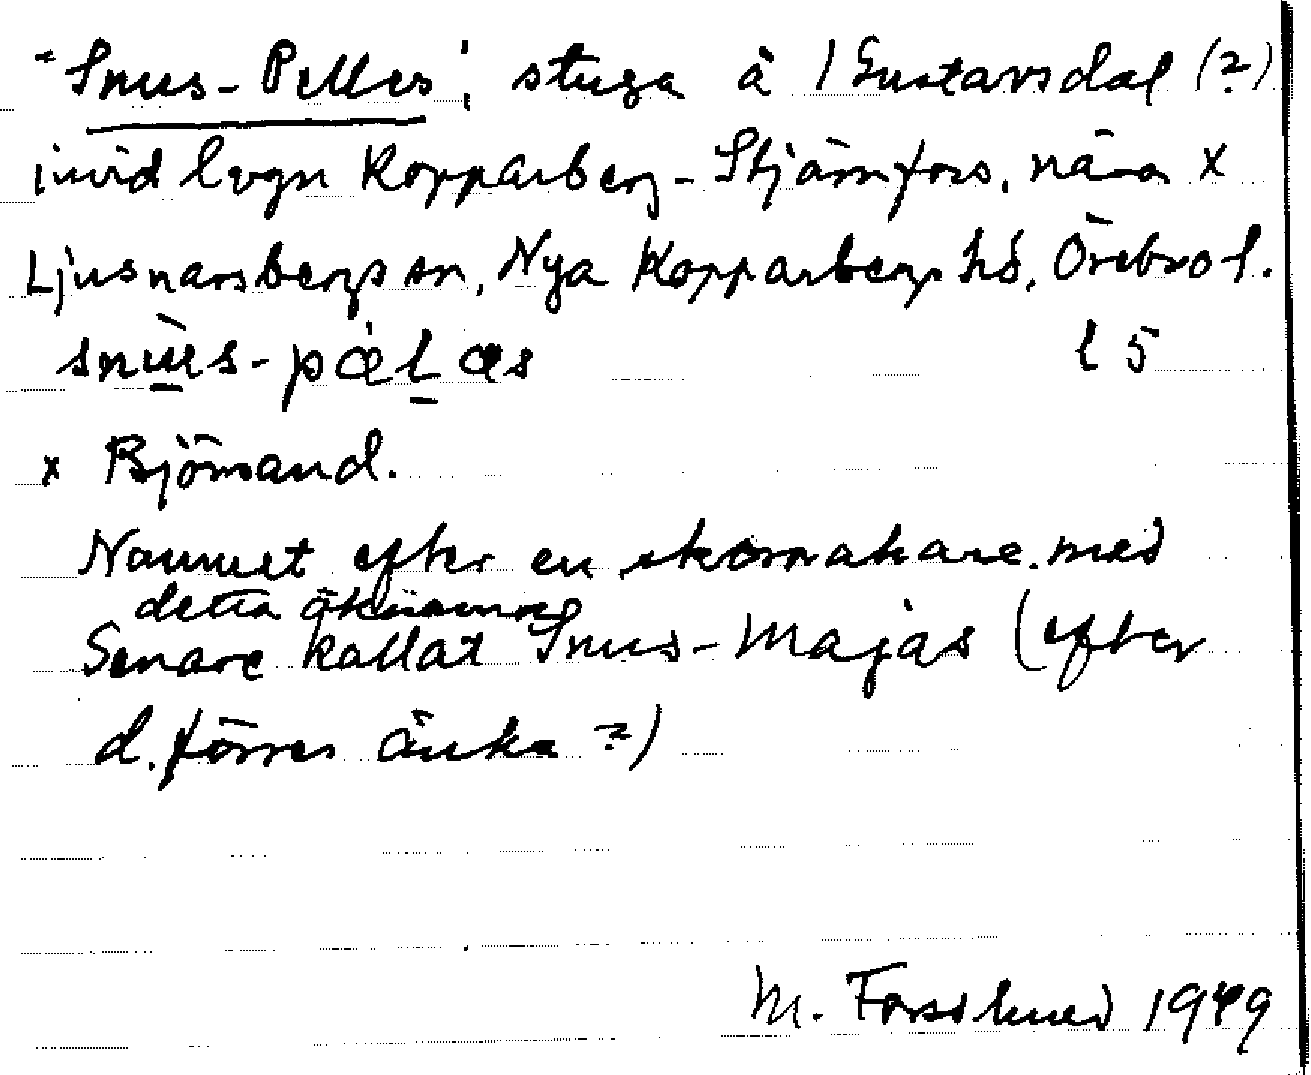 "Snus-Pelles", stuga å 1 Gustavsdal (?)
invid lvgn Kopparberg-Stjärnfors, nära x
Ljusnarsbergs sn, Nya Kopparbergs hd, Örebro l.
snùs-pæ̀ḷæs l 5
x Björnsand.
Namnet efter en skomakare med
detta öknamn
Senare kallat Snus-Majas (efter
d. förres änka ?)
M. Forsslund 1949